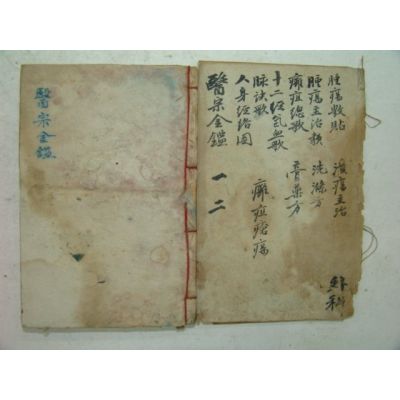 腫瘍敷貼 潰瘍主治
腫瘍主治類 洗滌方
癰疽總歌 膏藥方
十二經氣血歌
脉訣歌 癰疽
人身經絡圖
醫宗金鑑 一 二
醫宗金鑑